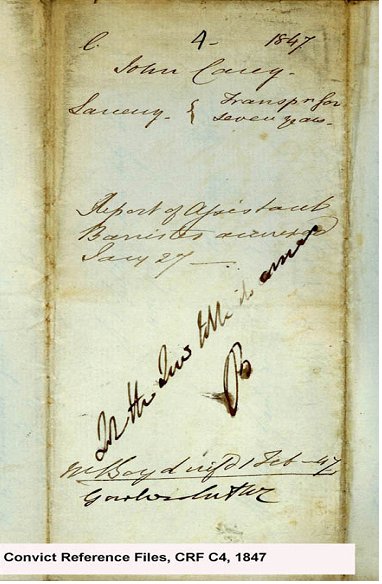 C. 4. 1847
John Carey.
Larceny. { Transpn for
seven years.
Report of Assistant
Barrister
Jany 27
Let the Law take its course
Mr Boyd infd 1 Feb -47
Convict Reference Files, CRF C4, 1847